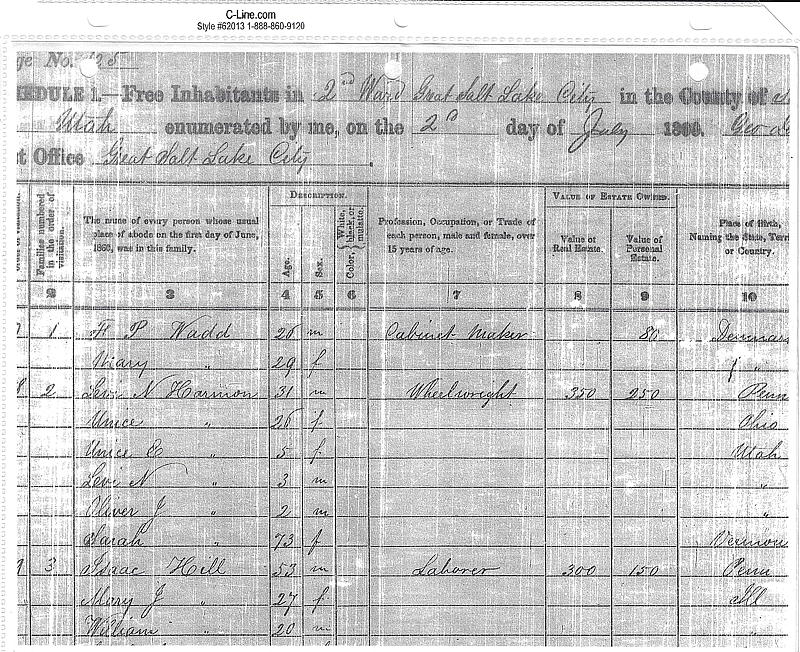 C-Line.com
Style #62013 1-888-860-9120
ge No. 125
EDULE 1.—Free Inhabitants in 2nd Ward Great Salt Lake City in the County of
Utah enumerated by me, on the 2d day of July 1860. Geo
t Office Great Salt Lake City.
Families numbered in the order of visitation.
The name of every person whose usual place of abode on the first day of June, 1860, was in this family.
DESCRIPTION.
Age.
Sex.
Color, { White, black, or mulatto.
Profession, Occupation, or Trade of each person, male and female, over 15 years of age.
VALUE OF ESTATE OWNED.
Value of Real Estate.
Value of Personal Estate.
Place of Birth, Naming the State, Terri or Country.
2 3 4 5 6 7 8 9 10
1 P Wadd 26 m Cabinet Maker 80 Denmar
Mary " 29 f "
2 Levi N Harmon 31 m Wheelwright 350 250 Penn
Unice " 26 f Ohio
Unice E " 5 f Utah
Levi N " 3 m "
Oliver J " 2 m "
Sarah " 73 f Vermon
3 Isaac Hill 53 m Laborer 300 150 Penn
Mary J " 27 f Ill
William " 20 m "